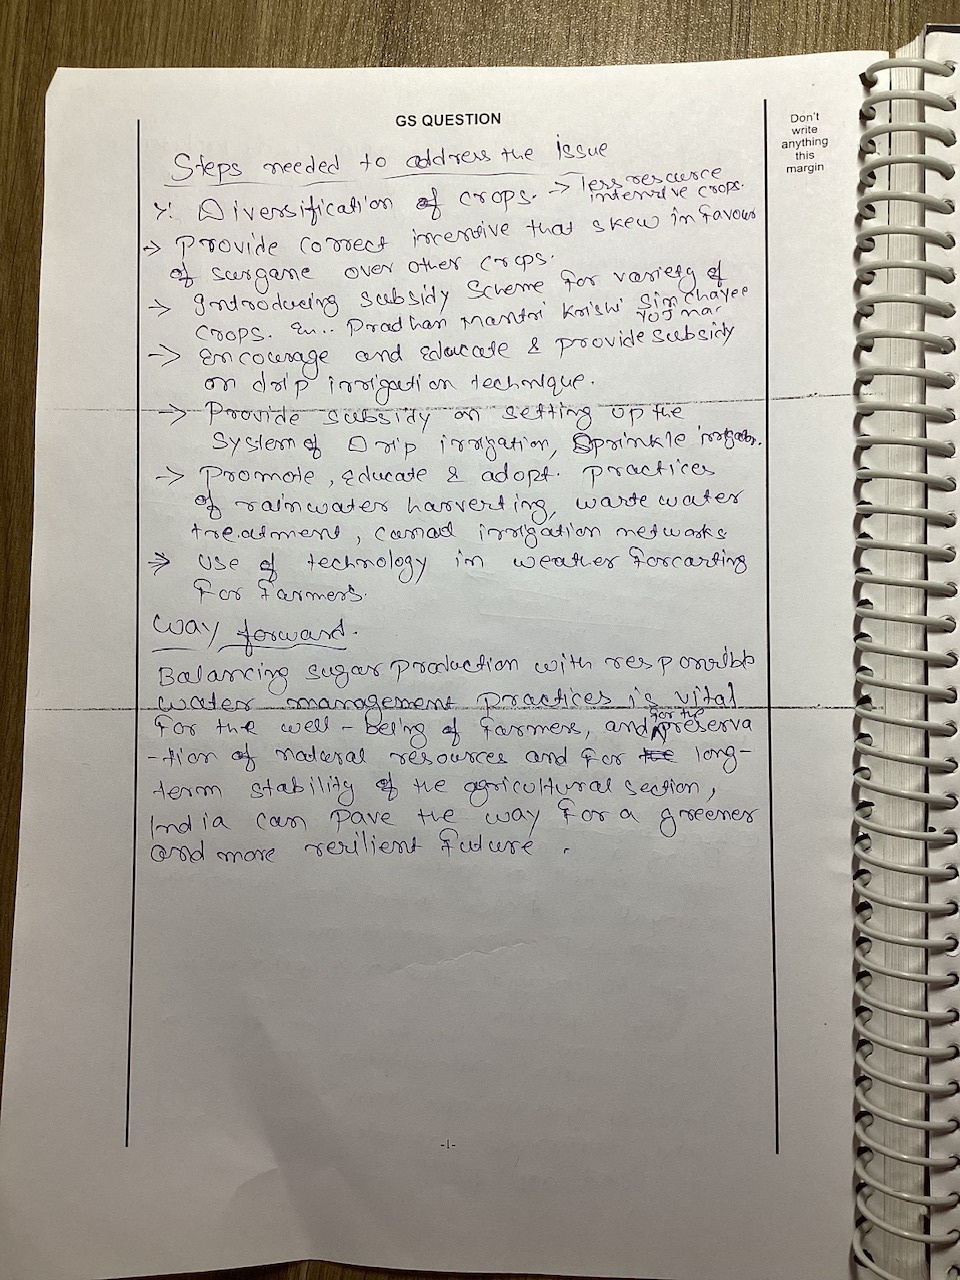 GS QUESTION
Don't
write
anything
this
margin
Steps needed to address the issue
Diversification of crops. → less resource
intensive crops.
→ Provide correct incentive that skew in favour
of surgane over other crops.
→ Introducing subsidy scheme for variety of
crops. Pradhan Mantri Krishi Sinchayee
Yojna
→ Encourage and Educate & provide subsidy
on drip irrigation technique.
→ Provide subsidy on setting up the
system of Drip irrigation, Sprinkle
→ Promote, Educate & adopt. practices
of rainwater harverting, waste water
treatment, canad irrigation networks
→ Use of technology in weather forcarting
for farmers.
Way forward.
Balancing sugar production with
water management practices is vital
for the well-being of farmers, and for the preserva
-tion of natural resources and for long-
term stability of the agricultural section,
India can pave the way for a greener
and more rerilient future.
-1-